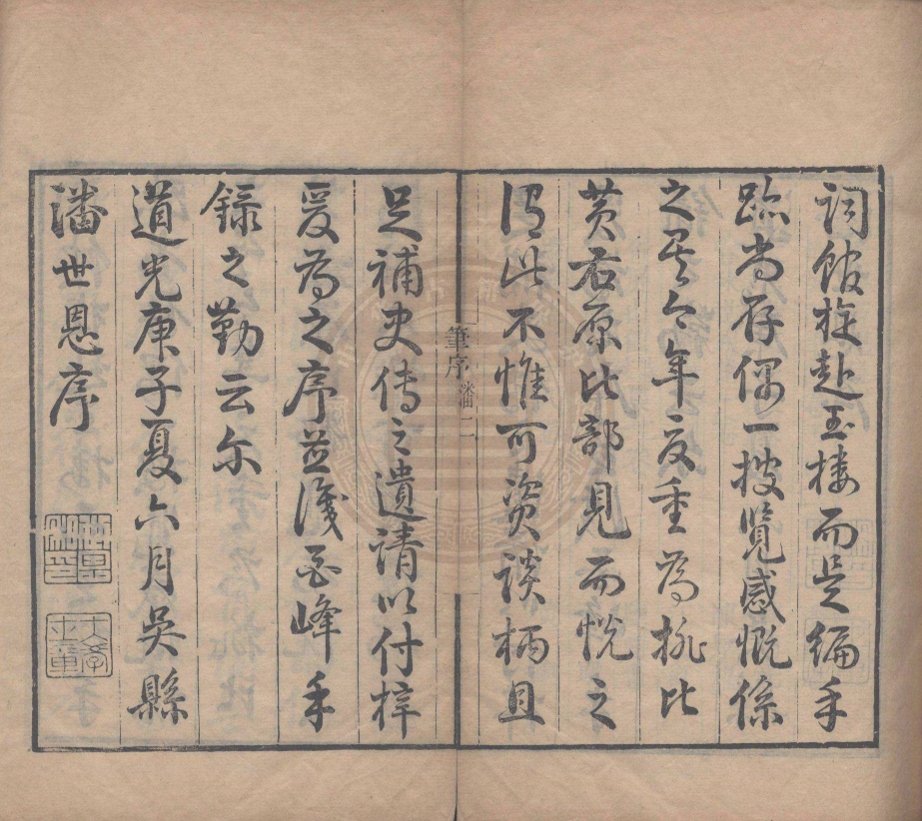 詞館旋赴玉樓而是編手
跡尚存偶一披覽感慨係
之矣今年夏重為排比
黃右原比部見而悅之
謂此不惟可資談柄且
筆序
足補史傳之遺請以付梓
爰為之序並識匏峰手
錄之勤云尔
道光庚子夏六月吳縣
潘世恩序